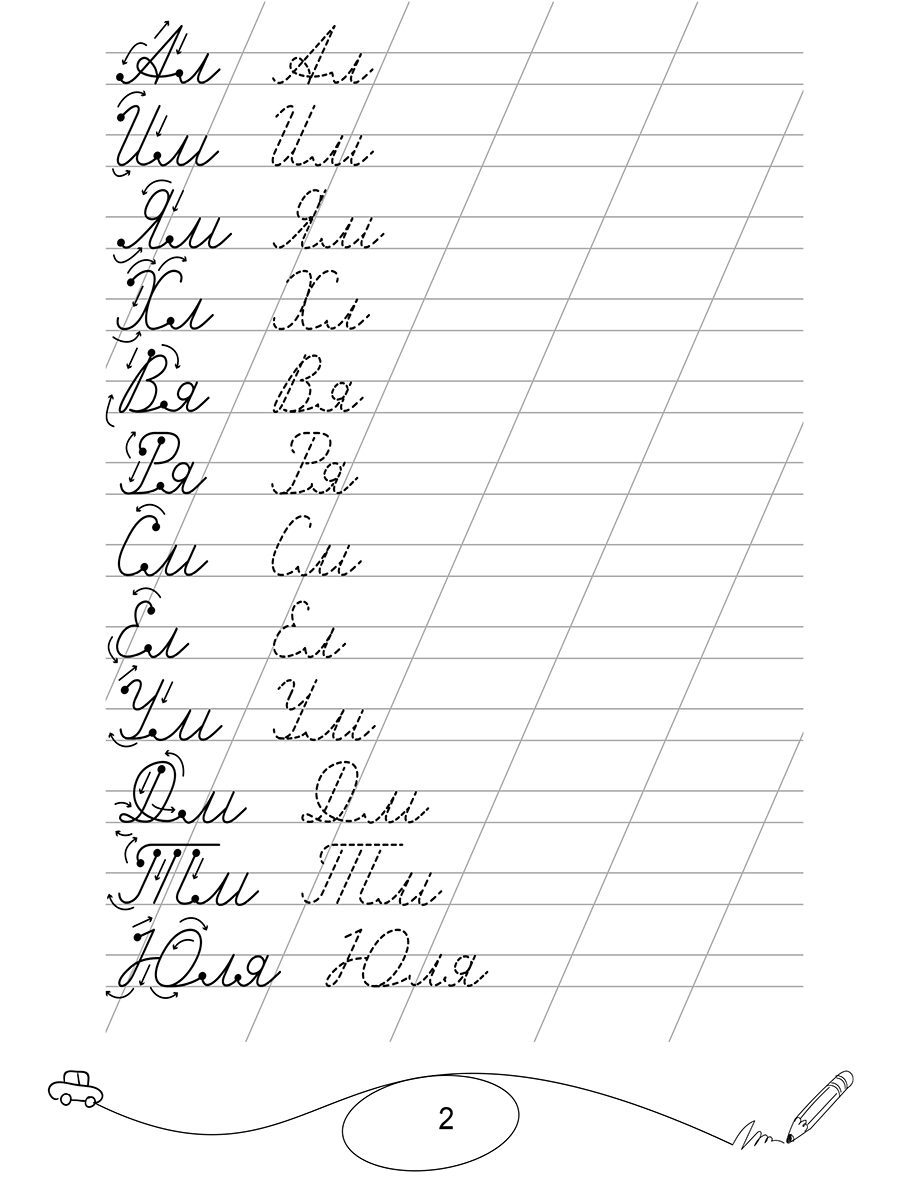 Ал Ал
Им Им
Ям Ям
Хл Хл
Вя Вя
Ря Ря
См См
Ел Ел
Ум Ум
Дм Дм
Тм Тм
Юля Юля
2